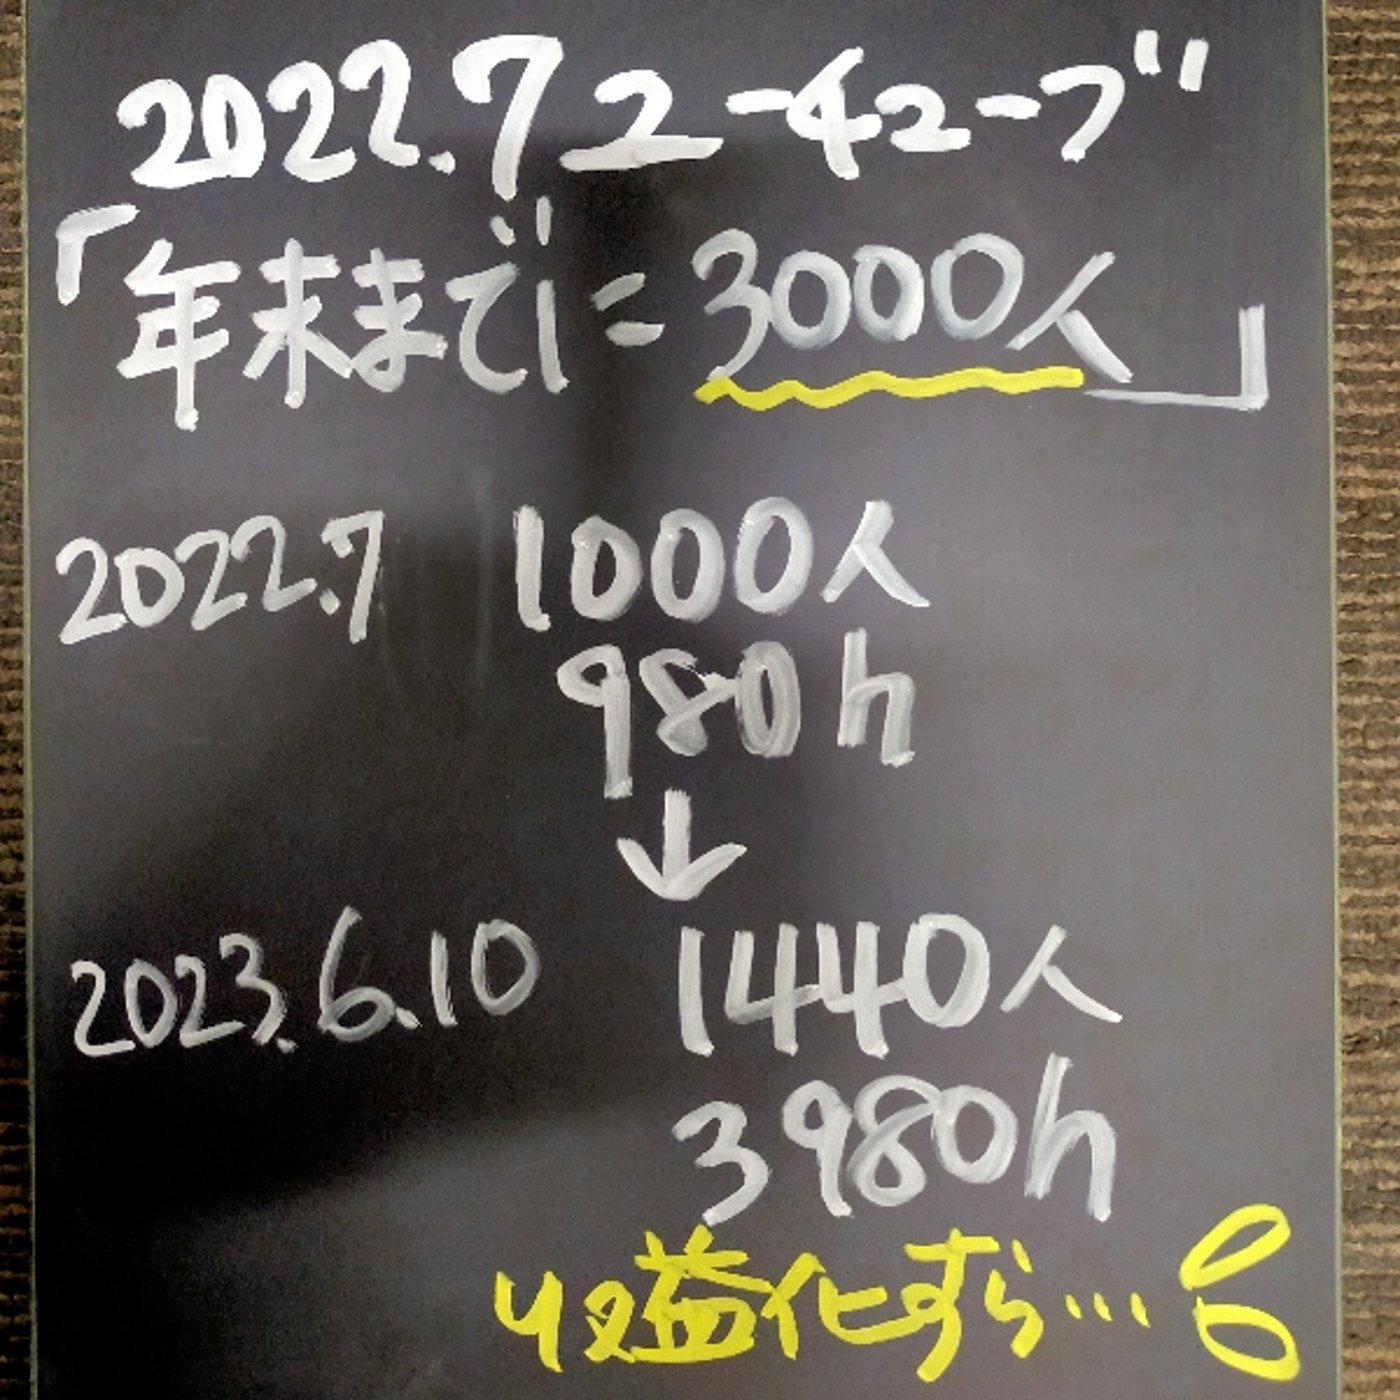 2022.7 ユーチューブ
「年末までに3000人」
2022.7 1000人
980h
↓
2023.6.10 1440人
3980h
収益化すら…